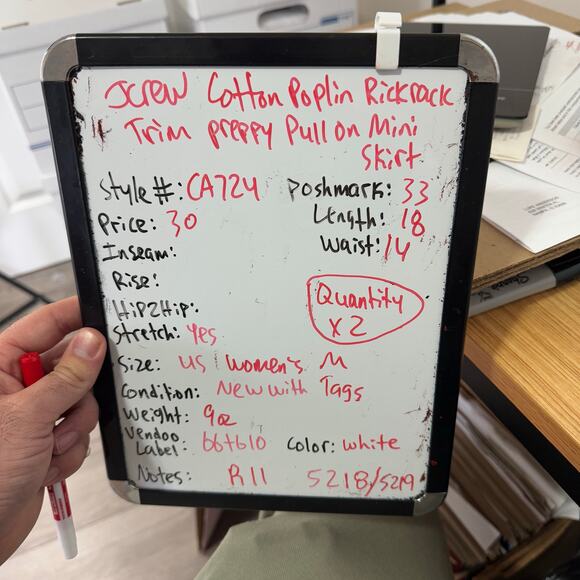 JCREW Cotton Poplin Rickrack
Trim preppy Pull on Mini
Skirt
Style#: CA724 Poshmark: 33
Price: 30 Length: 18
Inseam: Waist: 14
Rise:
Hip2Hip: Quantity
Stretch: Yes x2
Size: US Women's M
Condition: New with Tags
Weight: 9oz
Vendoo
Label: bbtb10 Color: White
Notes: R11 5218/5219